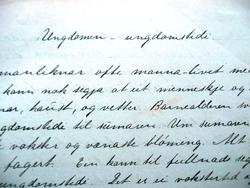 Ungdomen - ungdomstide.
manliknar ofte manna-livet me
kann nok segja at eit menneskje og
mar, haust, og vetter. Barnealderen sv
gdomstide til sumaren. Um sumarn
vekker og vanaste bløming. Alt
fagert. Ein kann til fullnad seg
ungdomstide. Det er ei vokstertid